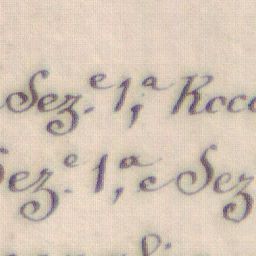 Sez.e 1,a
Sez.e 1,a e Sez